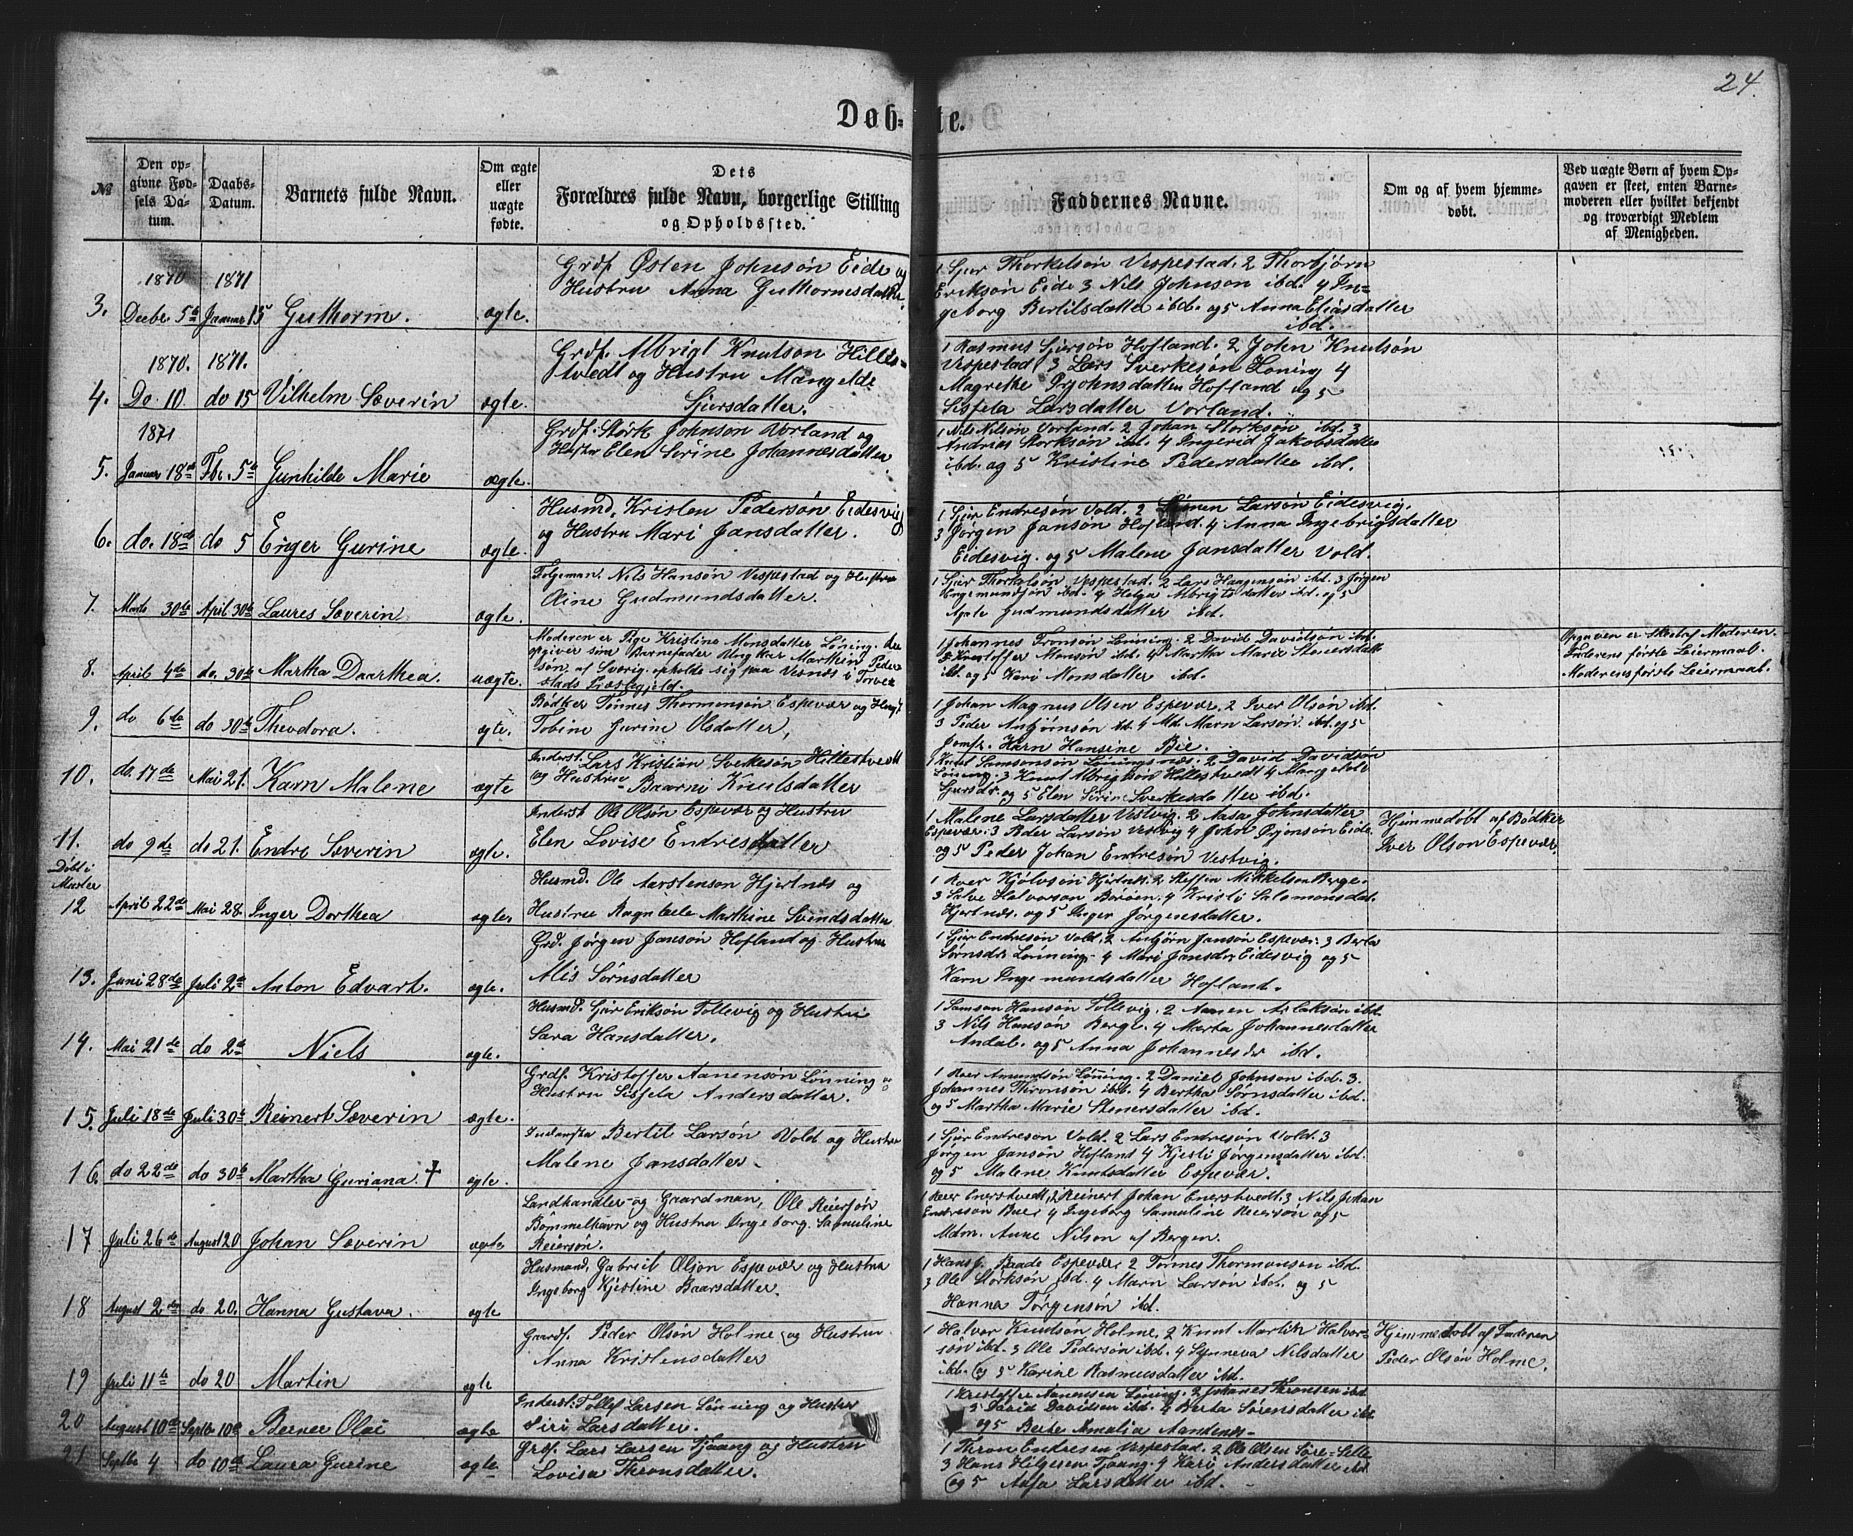 24.
Døb-
te.
№
Den opgivne Fødsels Datum.
Daabs-Datum.
Barnets fulde Navn.
Om ægte eller uægte fødte.
Dets Forældres fulde Navn, borgerlige Stilling og Opholdssted.
Faddernes Navne.
Om og af hvem hjemmedøbt.
Ved uægte Børn af hvem Opgaven er skeet, enten Barnemoderen eller hvilket bekjendt og troværdigt Medlem af Menigheden.
1870 1871
3. Decbr. 5te Januar 15 Guthorm. ægte.
Grdf. Østen Johnsøn Eide og
Hustru Anna Guthormsdatter.
1 Sjur Thorkelsøn Vespestad. 2 Thorbjørn
Eriksøn Eide 3 Nils Johnson ibd. 4 In-
geborg Bertilsdatter ibd. og 5 Anna Eliasdatter
ibd.
1870. 1871.
4. Do. 10 do 15 Vilhelm Severin ægte.
Grdf. Albrigt Knutson Hilles-
tvedt og Hustru Mangelde
Sjursdatter.
1 Rasmus Sjurson Hofland. 2 Joten Knutsøn
Vespestad 3 Lars Sverkesøn Løning 4
Magrethe Johnsdatter Hofland og 5
Sisfela Larsdatter Vorland.
1871
5. Januar 18de Fbr. 5te Gunhilde Marie ægte.
Grdf. Størk Johnson Vorland og
Hustru Elen Serine Johannesdatter
1 Nils Nilson Vorland. 2 Johan Storksøn, ibd. 3
Andreas Storksøn ibd. 4 Ingerid Jakobsdatter
ibd. og 5 Kristine Pedersdatter ibd.
6. do. 18de do 5 Enger Gurine ægte.
Husmd. Kristen Pedersøn Eidesvig
og Hustru Mari Jansdatter.
1 Sjur Endresøn Vold. 2 Larsøn Eidesvig.
3 Jørgen Jansøn Hofland. 4 Anna Ingebrigsdatter
Eidesvig. og 5 Malene Jansdatter Vold.
7. Marts 30te April 30te Laures Severin ægte.
Følgeman. Nils Hansøn Vespestad og Hustru
Oline Gudmundsdatter.
1 Sjur Thorkelsøn Vespestad. 2 Lars Haagensøn ibd. 3 Jørgen
Ingemundsøn ibd. 4 Helga Albrigtsdatter ibd. og 5
Agate Gudmundsdatter ibd.
8. April 4de do. 30te Martha Daarthea. uægte.
Moderen er Pige Kristine Monsdatter Løning. der
opgiver som Barnefader Ungkar Marthin Peder
søn. af Sverig. opholde sig paa Vesnæs i Torve
stads Præstegjeld.
1 Johannes Tronsøn Lønning. 2 David Davidsøn ibd.
3 Kristoffer Monsøn ibd. 4 Martha Marie Stenersdatter
ibd. og 5 Kari Monsdatter ibd.
Opgaven er skeet af Moderen.
Faderens første Leiermaal.
Moderens første Leiermaal.
9. do 6te do 30te Theodora. ægte.
Bødker Tønnes Thormonsøn Espevær og
Tobine Gurine Olsdatter.
1 Johan Magnus Olsen Espevær, 2 Iver Olsøn ibd.
3 Peder Asbjørnsøn ibd. 4 Md. Marn Larsøn ibd. og 5
Jomfr. Karn Hansine Bie.
10. do. 17de Mai 21. Karn Malene ægte
Inderst. Lars Kristian Sverkesøn Hillestvedt
og Hustru Baarni Knutsdatter
1 Knut Samsonsøn Løningsnæs. 2 David Davidsøn
Løning. 3 Knut Albrigtsøn Hillestvedt 4 Mangelde
Sjursdr. og 5 Elen Serine Sverkesdatter ibd.
11. do 9de do 21. Endre Severin ægte.
Døbt i
Moster
Inderst Ole Olsøn Espevær og Hustru
Elen Lovise Endresdatter
1 Malene Larsdatter Vestvig. 2 Aasa Johnsdatter
Espevær. 3 Peder Larsøn Vestvig 4 John Ørjensøn Eide.
og 5 Peder Johan Endresøn Vestvig.
Hjemmedøbt af Bødker
Iver Olson Espevær.
12 April 22de Mai 28. Inger Dorthea ægte.
Husmd. Ole Aarstenson Hjertnæs og
Hustru Ragnbele Marthine Svendsdatter
1 Roer Kjølvsøn Hjertnes. 2 Steffen Mikkelsen Berge.
3 Salve Halvorson Børøen. 4 Kristi Salomonsdat.
Hjertnæs. og 5 Inger Jørgensdatter.
13. Juni 28de Juli 2den Anton Edvart. ægte.
Grd. Jørgen Jansøn Hofland og Hustru
Alis Sørnsdatter
1 Sjur Endresøn Vold. 2 Anbjørn Jansøn Espevær. 3 Berta
Sørnsdr. Lønning. 4 Mari Jansdr. Eidesvig og 5
Karn Ingemundsdatter Hofland.
14. Mai 21de do 2den Niels ægte.
Husmd. Sjur Eriksøn Tollevig og Hustru
Sara Hansdatter.
1 Samson Hansøn Tollevig, 2 Aanen Aslaksøn ibd.
3 Nils Hansøn Berge. 4 Marta Johannesdatter
Andal. og 5 Anna Johannesdr ibd.
15. Juli 18de Juli 30te Reinert Severin ægte.
Grdf. Kristoffer Aanensøn Lønning og
Hustru Sisfela Andersdatter.
1 Roer Amundsøn Lønning. 2 Daniel Johnson ibd. 3.
Johannes Thronsøn ibd. 4 Bertha Sørnsdatter ibd.
og 5 Martha Marie Stenersdatter ibd.
16. do 22de do 30te Martha Guriana. † ægte.
Bertil Larsøn Vold og Hustru
Malene Jansdatter.
1 Sjur Endresøn Vold. 2 Lars Endresøn Vold. 3
Jørgen Jansøn Hofland 4 Kjesti Jørgensdatter ibd.
og 5 Malene Knutsdatter Espevær.
17 Juli 26de August 20 Johan Severin ægte.
Landhandler og Gaardman, Ole Reiersøn
Bommelhavn og Hustru Ingeborg Samuline
Reiersøn.
1 Reier Enerstvedt, 2 Reinert Johan Enerstvedt. 3 Nils Johan
Endreson Bue. 4 Ingeborg Samuline Reiersøn og 5
Mdm. Anne Nilson af Bergen.
18 August 2den do. 20. Hanna Gustava. ægte
Husmand, Gabriel Olson Espevær og Hustru
Ingeborg Kjestine Baarsdatter.
1 Hans J. Baade Espevær. 2 Tønnes Thormonson ibd.
3 Ole Storkson ibd. 4 Marn Larson ibd. og 5
Hanna Tørgensøn ibd.
19 Juli 11te do 20 Martin ægte
Gaardf. Peder Olsøn Holme og Hustru
Anna Kristensdatter
1 Halvor Knudsøn Holme. 2 Knut Martin Halvor-
søn ibd. 3 Ole Pedersøn ibd. 4 Synneva Nilsdatter
ibd. og 5 Karine Rasmusdatter ibd.
Hjemmedøbt af Faderen
Peder Olsøn Holme.
20 August 10de Septbr 10de Berner Olai ægte
Inderst: Tollef Larsen Lønning og Hustru
Siri Larsdatter.
1 Kristoffer Aanensen Løning. 2 Johanes Thronsen ibd.
3 David Davidsen ibd. 4 Berta Sørensdatter ibd.
og 5 Berte Amalia
21 Septbr 4 do 10de Laura Gurine ægte
Grdf. Lars Larsen Tjaang og Hustru
Lovisa Thronsdatter.
1 Thron Endresen Vespestad. 2 Ole Olsen
3 Hans Helgesen Tjaang. 4 Kari Andersdatter ibd
og 5 Aasa Larsdatter ibd.